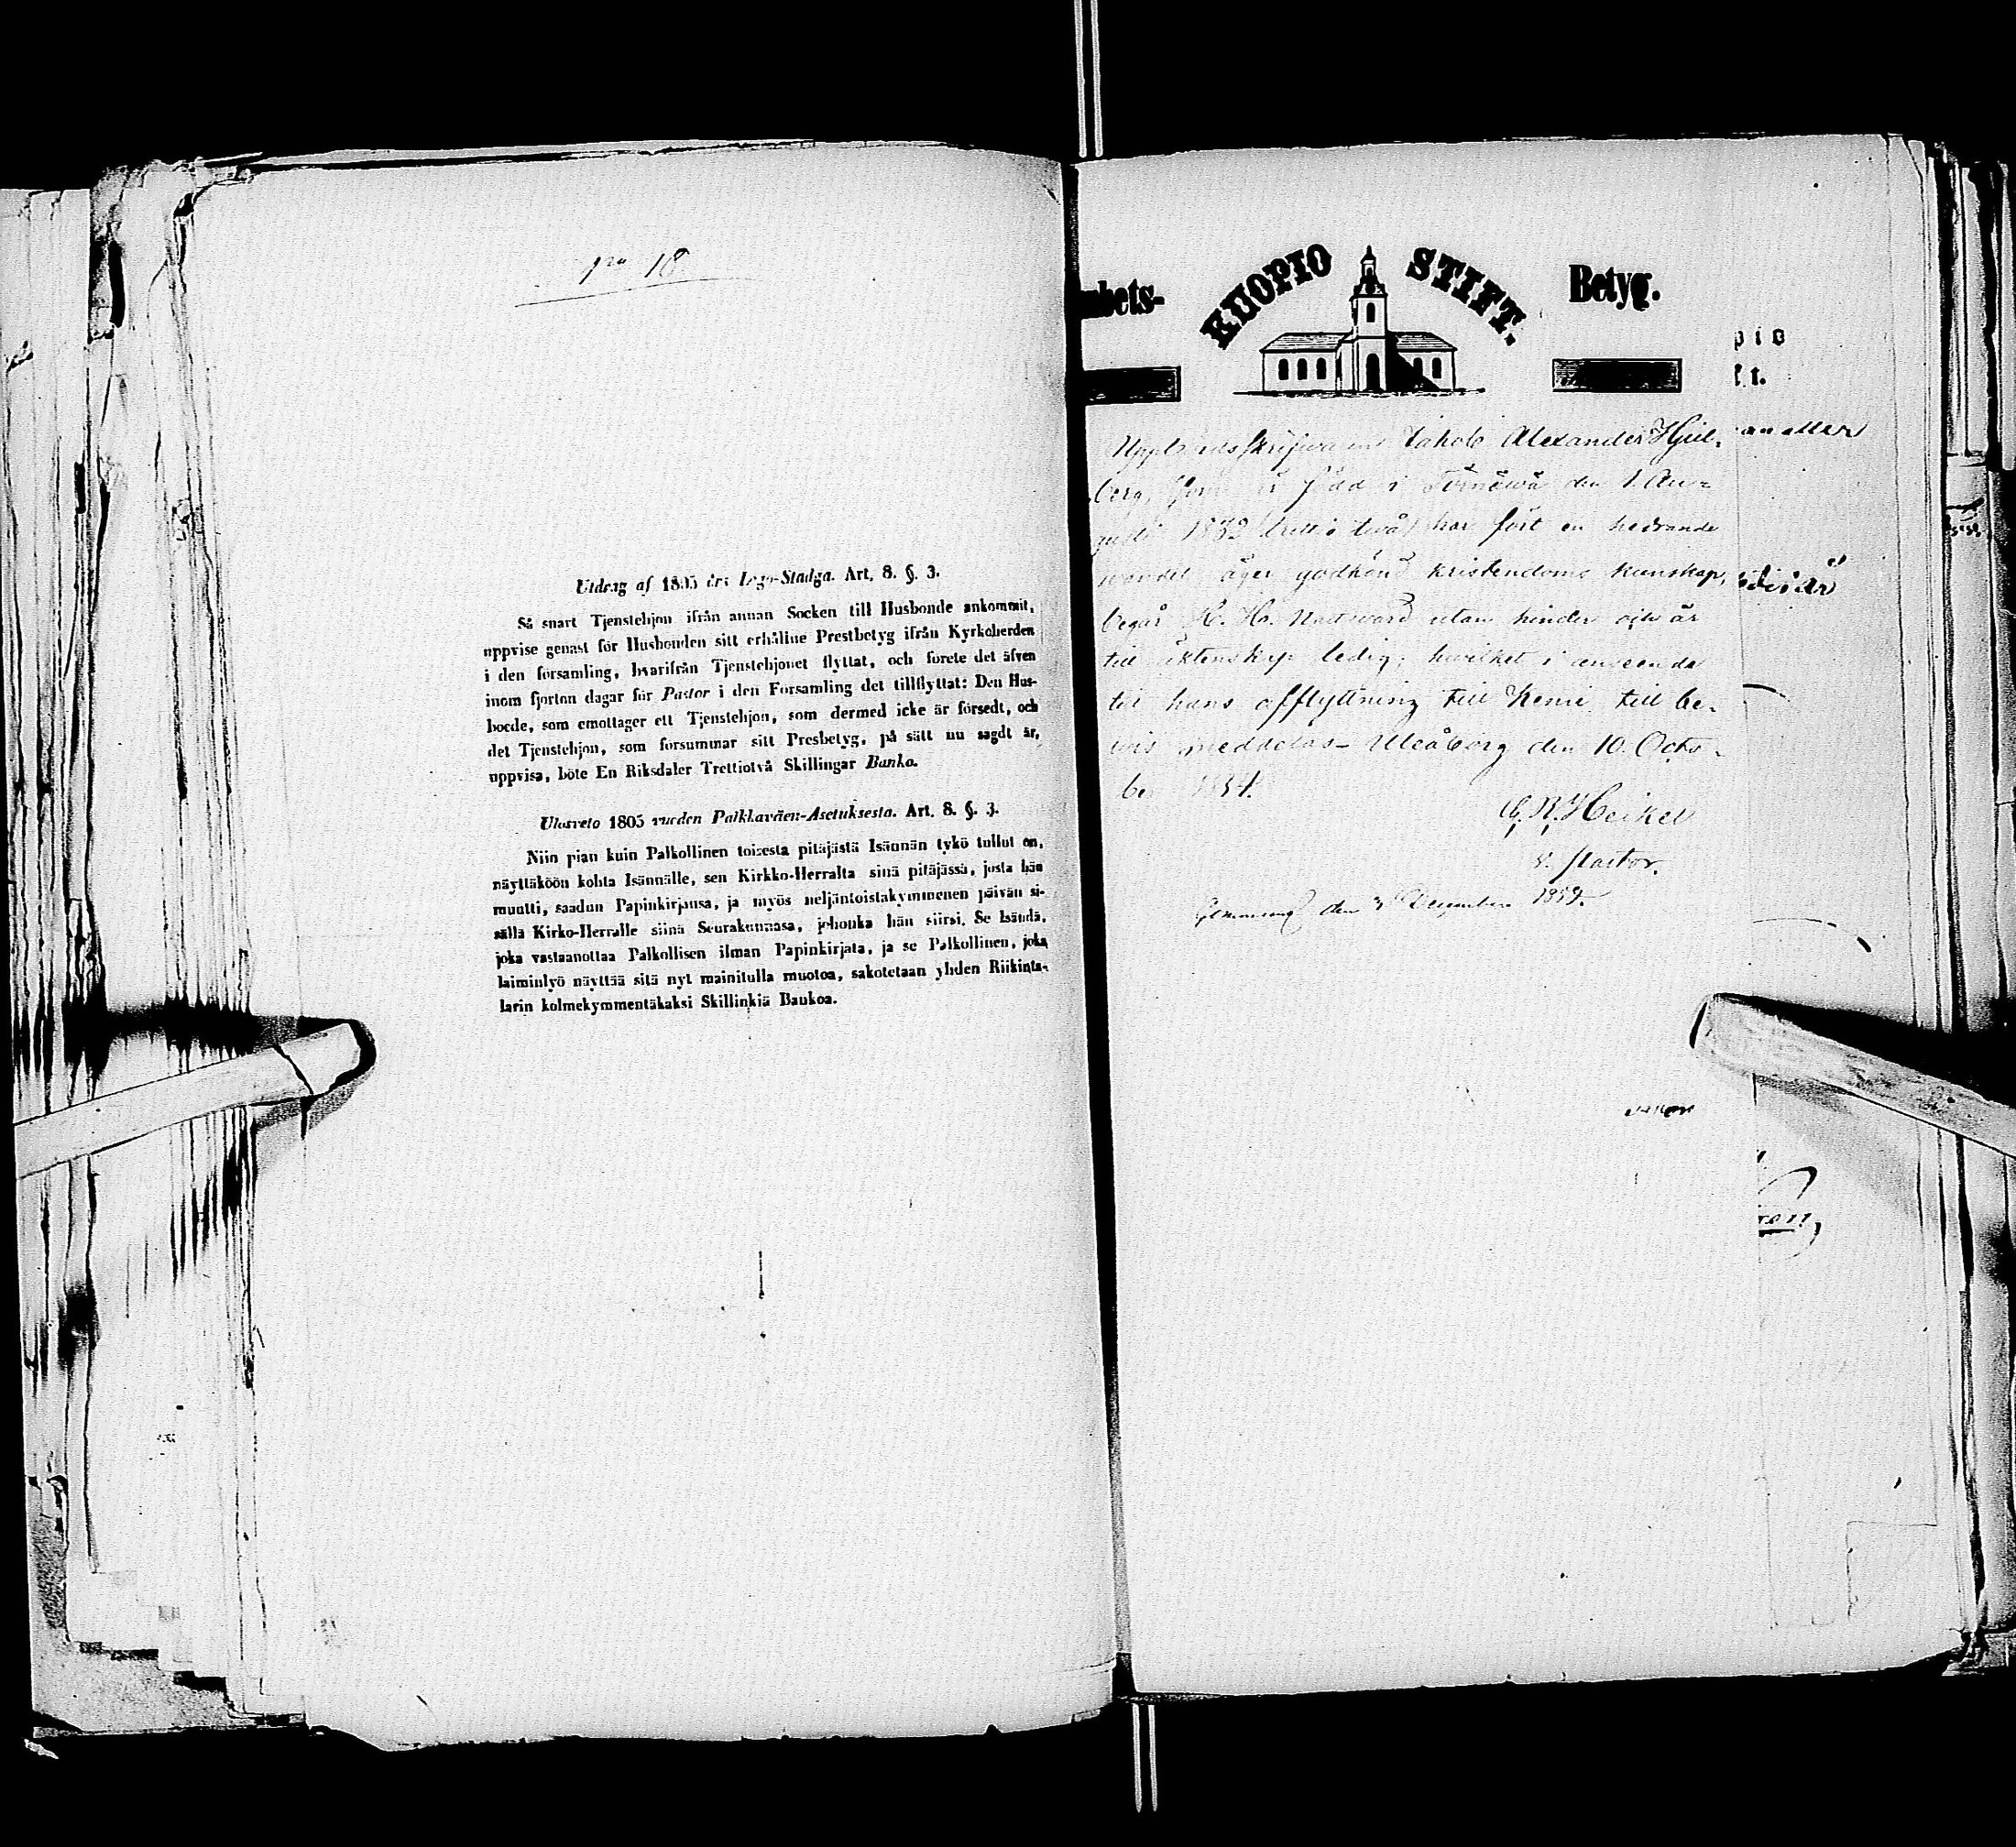 18
Utdrag af 1805 års Lego-Stadga. Art. 8. §. 3.
Så snart Tjenstehjon ifrån annan Socken till Husbonde ankommit,
uppvise genast för Husbonden sitt erhållne Prestbetyg ifrån Kyrkoherden
i den församling, hvarifrån Tjenstehjonet flyttat, och förete det äfven
inom fjorton dagar för Pastor i den Församling det tillflyttat: Den Hus-
bonde, som emottager ett Tjenstehjon, som dermed icke är försedt, och
det Tjenstehjon, som försummar sitt Presbetyg, på sätt nu sagdt är,
uppvisa, böte En Riksdaler Trettiotvå Skillingar Banko.
Ulosveto 1805 vuoden Palkkaväen-Asetuksesta. Art. 8. §. 3.
Niin pian kuin Palkollinen toisesta pitäjästä Isännän tykö tullut on,
näyttäköön kohta Isännälle, sen Kirkko-Herralta sinä pitäjässä, josta hän
muutti, saadun Papinkirjansa, ja myös neljäntoistakymmenen päivän si-
sällä Kirko-Herralle siinä Seurakunnasa, johonka hän siirsi. Se Isändä,
joka vastaanottaa Palkollisen ilman Papinkirjata, ja se Palkollinen, joka
laiminlyö näyttää sitä nyt mainitulla muotoa, sakotetaan yhden Riikinta-
larin kolmekymmentäkaksi Skillinkiä Bankoa.
hets- KUOPIO STIFT. Betyg.
Jakob Alexander Hjel-
berg, som är född i Törnäwä den 1. Au-
gusti 1832 (trettio två) har fört en hedrande
wandel äger godkänd kristendoms kunskap,
begår H. H. Nattward utan hinder och är
till äktenskap ledig; hwilket i anseende
till hans afflyttning till Kemi till be-
wis meddelas. Uleåborg den 10. Octo-
ber 1854.
Heikel
v. Pastor.
den 3 December 1854